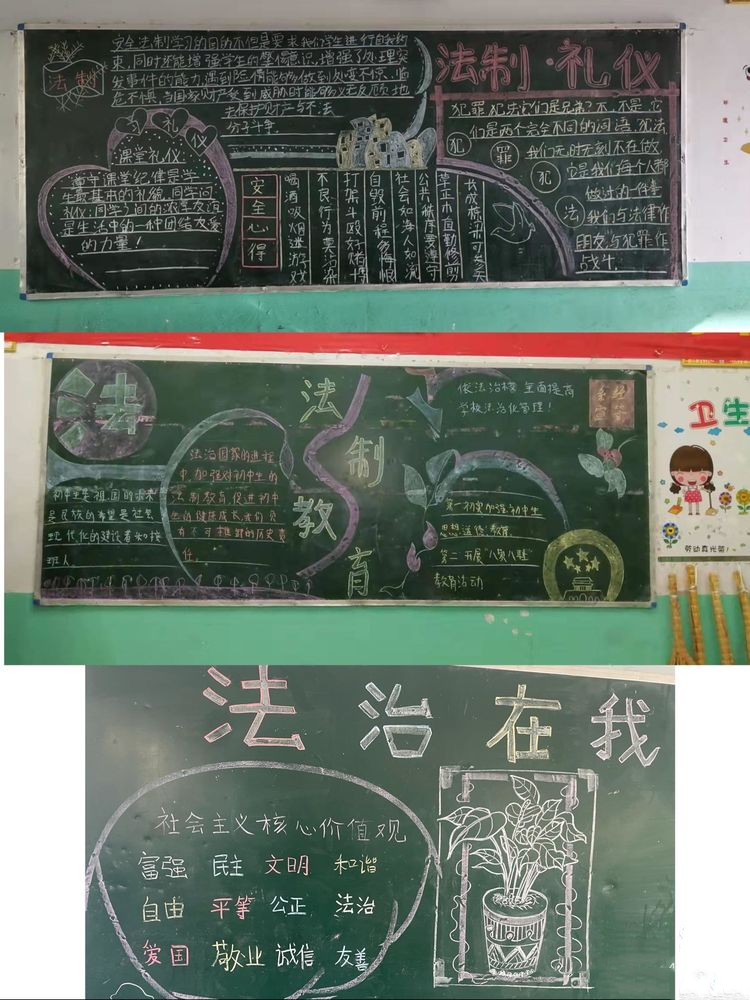 安全法制学习的目的不但是要求我们学生进行自我约
束,同时还能增强学生的警惕意识,增强了处理突
发事件的能力,遇到险情能够做到处变不惊、临
危不惧,当国家财产受到威胁时能够义无反顾地
去保护财产与不法
分子斗争.
法制
习礼仪
课堂礼仪
遵守课堂纪律是学
生最基本的礼貌,同学间
礼仪:同学之间的深厚友谊
是生活中的一种团结友爱
的力量!
安全心得
喝酒吸烟迷游戏
不良行为要沾染
打架斗殴好赌博
自毁前程多悔恨
社会如海人如滴
公共秩序要遵守
法制·礼仪
犯罪犯法它们是兄弟?不,不是,它
们是两个完全不同的词语,犯法
我们无时无刻不在做
它是我们每个人都
做过的一件事
我们与法律作
朋友,与犯罪作
战斗.
犯
罪
犯
法
法
法制教育
初中生是祖国的未来
是民族的希望是社会
现代化的建设者和接
班人
法治国家的进程
中,加强对初中生的
法制教育促进初中
生的健康成长,我们负
有不可推卸的历史责
任.
依法治校 全面提高
学校法治化管理!
第一切实加强初中生
思想道德教育
教育活动
卫生
劳动真光荣!
法治在我
社会主义核心价值观
富强 民主 文明 和谐
自由 平等 公正 法治
爱国 敬业 诚信 友善